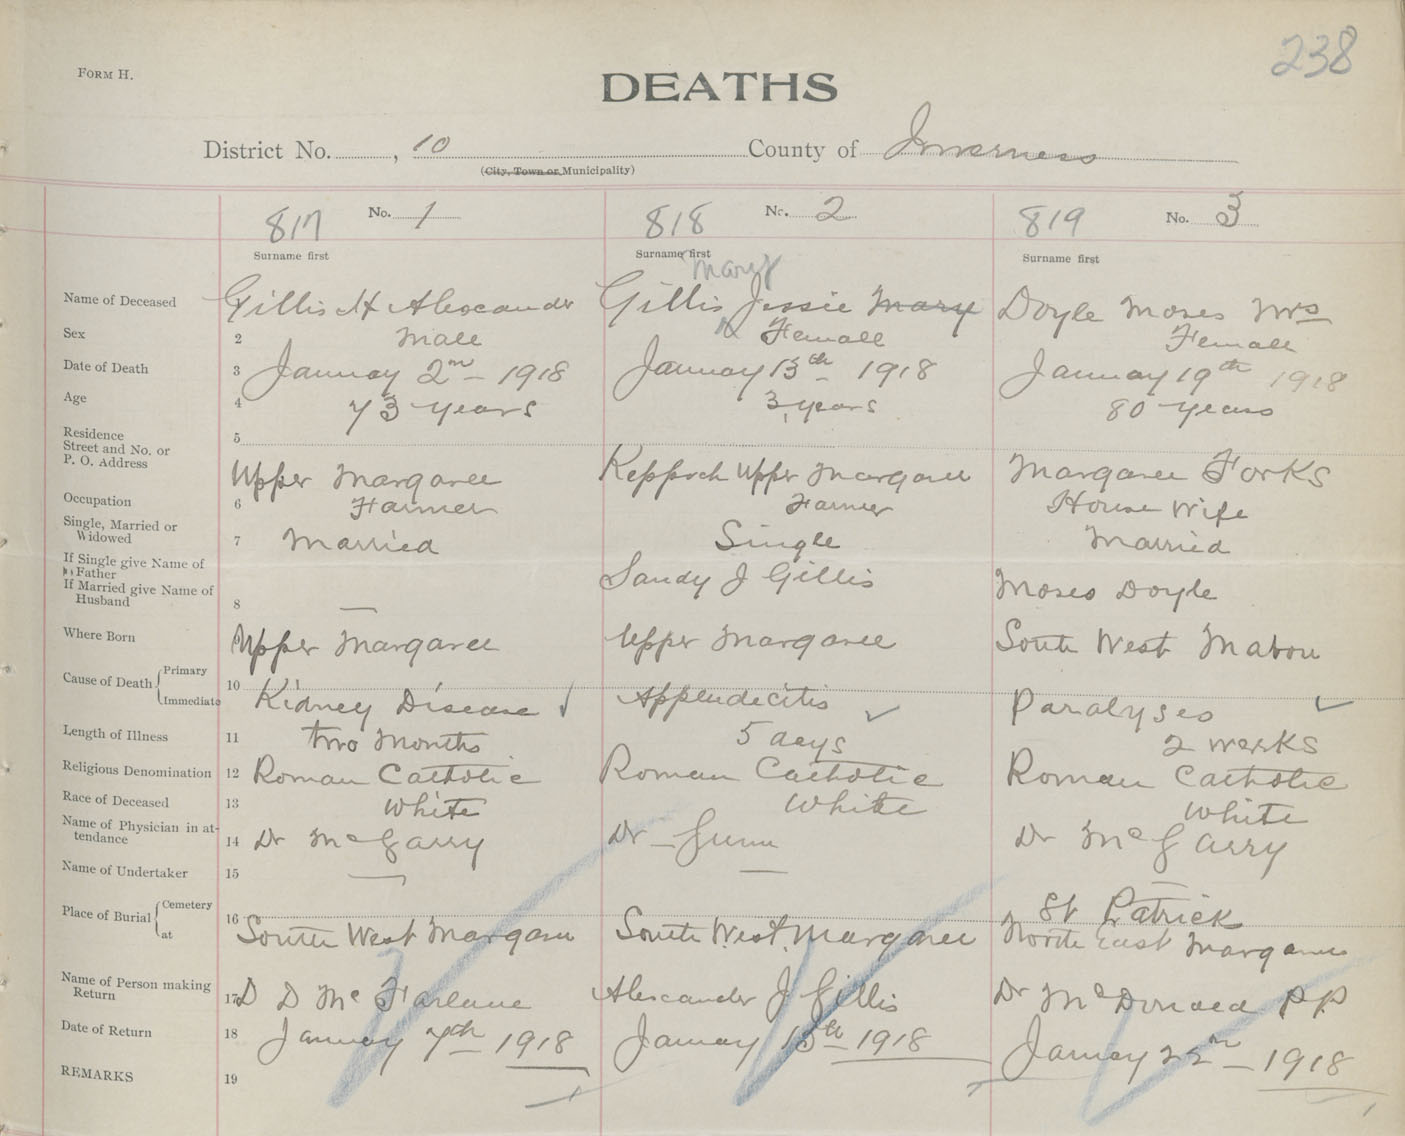 238
FORM H.
DEATHS
District No. , 10 County of Inverness
(City, Town or Municipality)
817 No. 1 818 No. 2 819 No. 3
Surname first Surname first Surname first
Mary
Name of Deceased Gillis Alexander Gillis Jessie Mary Doyle Moses Mrs
Sex 2 Male Female Female
Date of Death 3 January 2nd 1918 January 13th 1918 January 19th 1918
Age 4 73 years 3 years 80 years
Residence 5
Street and No. or
P. O. Address Upper Margaree Keppoch Upper Margaree Margaree Forks
Occupation 6 Farmer Farmer House Wife
Single, Married or
Widowed 7 Married Single Married
If Single give Name of
Father Sandy J Gillis Moses Doyle
If Married give Name of
Husband 8 —
Where Born Upper Margaree Upper Margaree South West Mabou
Cause of Death Primary 10
Immediate Kidney Disease Appendecitis Paralyses
Length of Illness 11 two Months 5 days 2 weeks
Religious Denomination 12 Roman Catholic Roman Catholic Roman Catholic
Race of Deceased 13 White White White
Name of Physician in at-
tendance 14 Dr McGarry Dr Gunn Dr McGarry
Name of Undertaker 15 — — —
Place of Burial Cemetery 16 St Patrick
at South West Margaree South West Margaree North East Margaree
Name of Person making
Return 17 D D McFarlane Alexander J Gillis Dr McDonald P.P.
Date of Return 18 January 7th 1918 January 15th 1918 January 22nd 1918
REMARKS 19